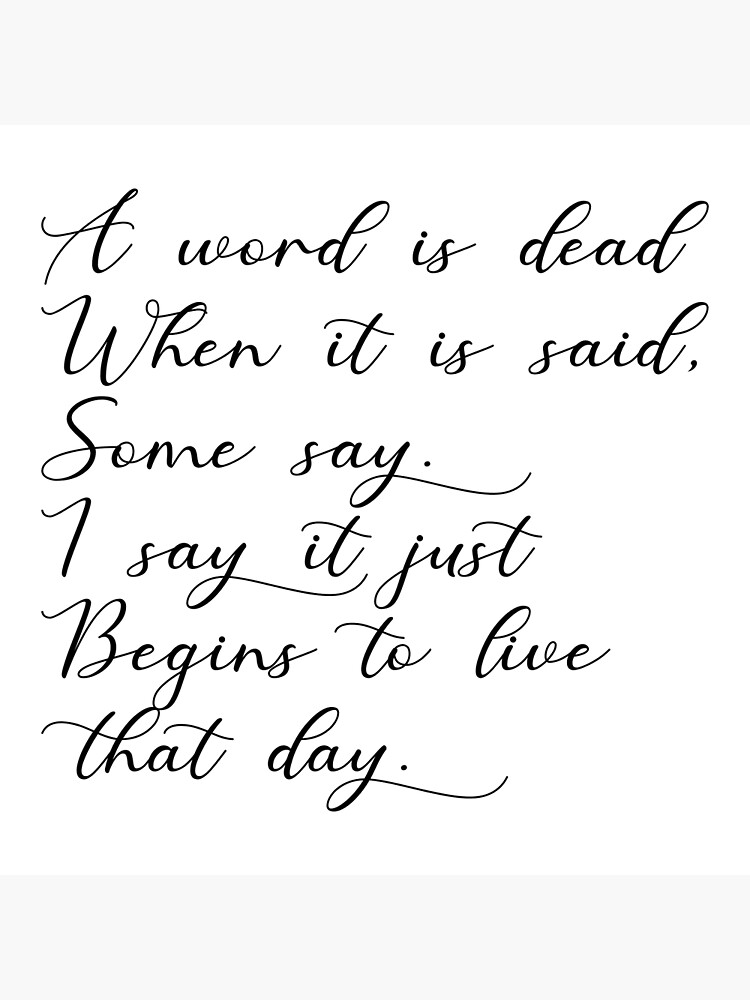 A word is dead
When it is said,
Some say.
I say it just
Begins to live
that day.